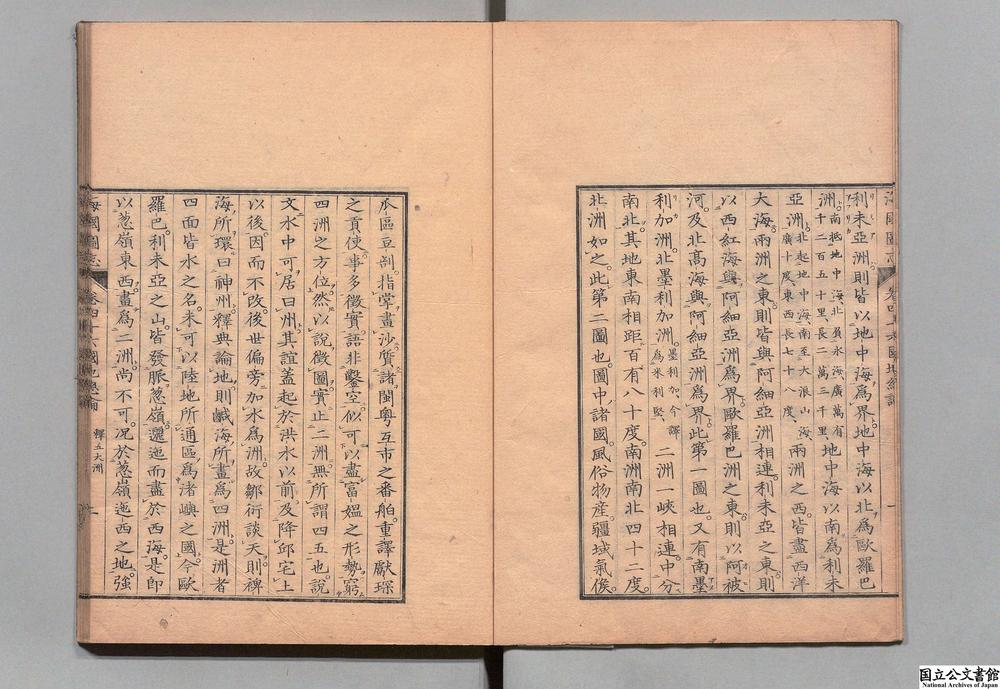 利未亞洲則皆以地中海爲界地中海以北爲歐羅巴
洲南抵地中海北負氷海廣萬有千二百五十里長二萬三千里地中海以南爲利未
亞洲北起地中海南至大浪山海廣十度東西長七十八度兩洲之西皆盡西洋
大海兩洲之東則皆與阿細亞洲相連利未亞之東則
以西紅海與阿細亞洲爲界歐羅巴洲之東則以阿被
河及北高海與阿細亞洲爲界此第一圖也又有南墨
利加洲北墨利加洲墨利加今譯爲米利堅二洲一峽相連中分
南北其地東南相距百有八十度南洲南北四十二度
北洲如之此第二圖也圖中諸國風俗物産疆域氣候
瓜區豆剖指掌畫沙質諸閩粵互市之番舶重譯獻琛
之貢使事多徵實語非鑿空似可以盡富媼之形勢窮
四洲之方位然以說徵圖實止二洲無所謂四五也說
文水中可居曰州其誼蓋起於洪水以前及降邱宅土
以後因而不改後世偏旁加水爲洲故鄒衍談天則裨
海所環曰神州釋典論地則鹹海所畫爲四洲是洲者
四面皆水之名未可以陸地所通區爲渚嶼之國今歐
羅巴利未亞之山皆發脈蔥嶺邐迤而盡於西海是卽
以蔥嶺東西畫爲二洲尚不可况於蔥嶺迤西之地強
海國圖志
釋五大洲
国立公文書館
National Archives of Japan